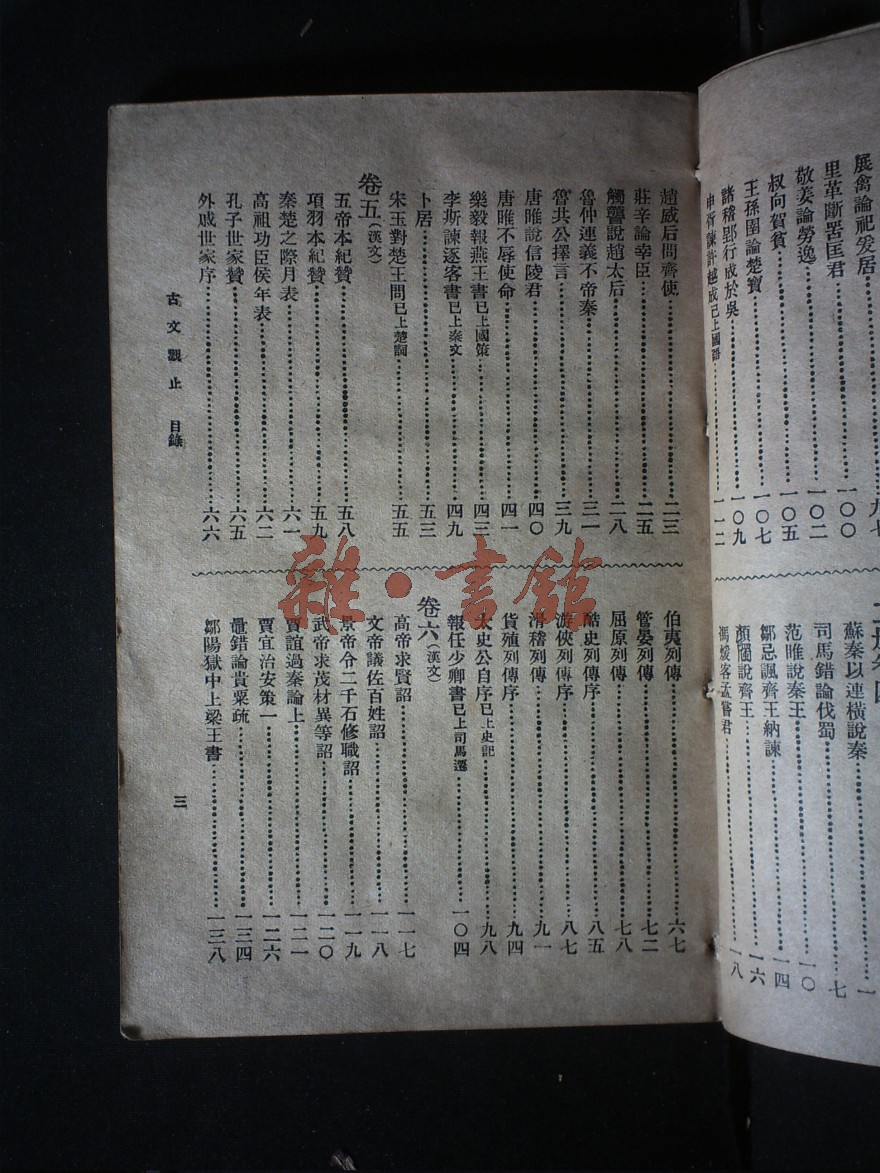 展禽論祀爰居……九七
里革斷罟匡君……一〇〇
敬姜論勞逸……一〇二
叔向賀貧……一〇五
王孫圉論楚寶……一〇七
諸稽郢行成於吳……一〇九
申胥諫許越成已上國語……一一二
蘇秦以連橫說秦……一
司馬錯論伐蜀……七
范睢說秦王……一〇
鄒忌諷齊王納諫……一四
顏斶說齊王……一六
馮煖客孟嘗君……一八
趙威后問齊使……二三
莊辛論幸臣……二五
觸讋說趙太后……二八
魯仲連義不帝秦……三一
魯共公擇言……三九
唐睢說信陵君……四〇
唐睢不辱使命……四一
樂毅報燕王書已上國策……四三
李斯諫逐客書已上秦文……四九
卜居……五三
宋玉對楚王問已上楚詞……五五
卷五(漢文)
五帝本紀贊……五八
項羽本紀贊……五九
秦楚之際月表……六一
高祖功臣侯年表……六二
孔子世家贊……六五
外戚世家序……六六
伯夷列傳……六七
管晏列傳……七二
屈原列傳……七八
酷史列傳序……八五
游俠列傳序……八七
滑稽列傳……九一
貨殖列傳序……九四
太史公自序已上史記……九八
報任少卿書已上司馬遷……一〇四
卷六(漢文)
高帝求賢詔……一一七
文帝議佐百姓詔……一一八
景帝令二千石修職詔……一一九
武帝求茂材異等詔……一二〇
賈誼過秦論上……一二一
賈宜治安策一……一二六
鼂錯論貴粟疏……一三四
鄒陽獄中上梁王書……一三八
古文觀止 目錄
三
雜·書館